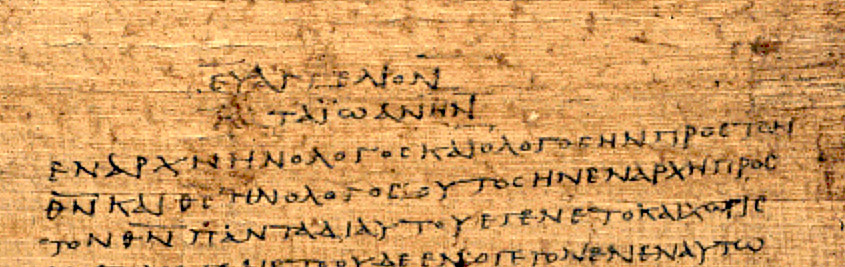 ΕΥΑΓΓΕΛΙΟΝ
ΚΑΤΑΪΩΑΝΗΝ
ΕΝΑΡΧΗΗΝΟΛΟΓΟΣΚΑΙΟΛΟΓΟΣΗΝΠΡΟΣΤΟΝ
ΘΝΚΑΙΘΣΗΝΟΛΟΓΟΣΟΥΤΟΣΗΝΕΝΑΡΧΗΠΡΟΣ
ΤΟΝΘΝΠΑΝΤΑΔΙΑΥΤΟΥΕΓΕΝΕΤΟΚΑΙΧΩΡΙΣ
ΟΥΔΕΕΝΟΓΕΓΟΝΕΝΕΝΑΥΤΩ